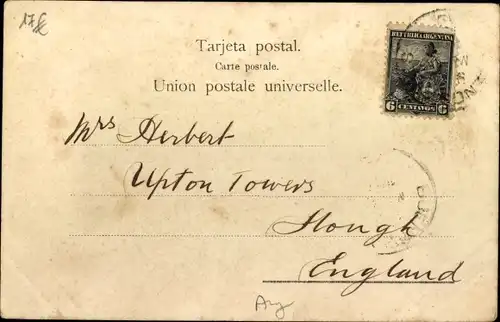 Tarjeta postal.
Carte postale.
Union postale universelle.
REPUBLICA ARGENTINA
6 CENTAVOS 6
Mrs Herbert
Upton Towers
Slough
England
Arg